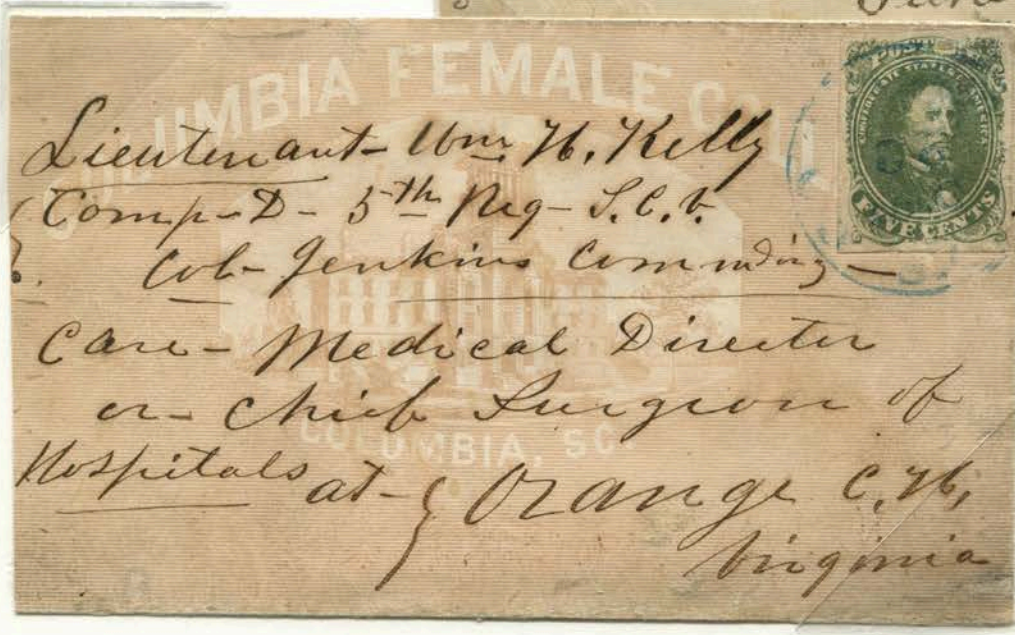 COLUMBIA FEMALE COLL
POSTAGE
CONFEDERATE STATES OF AMERICA
FIVE CENTS
Lieutenant- Wm H. Kelly
Comp- D- 5th Reg- S.C.V.
Col- Jenkins Commnding-
Care- Medical Director
or- Chief Surgeon of
COLUMBIA, SC
Hospitals at- Orange C.H,
Virginia